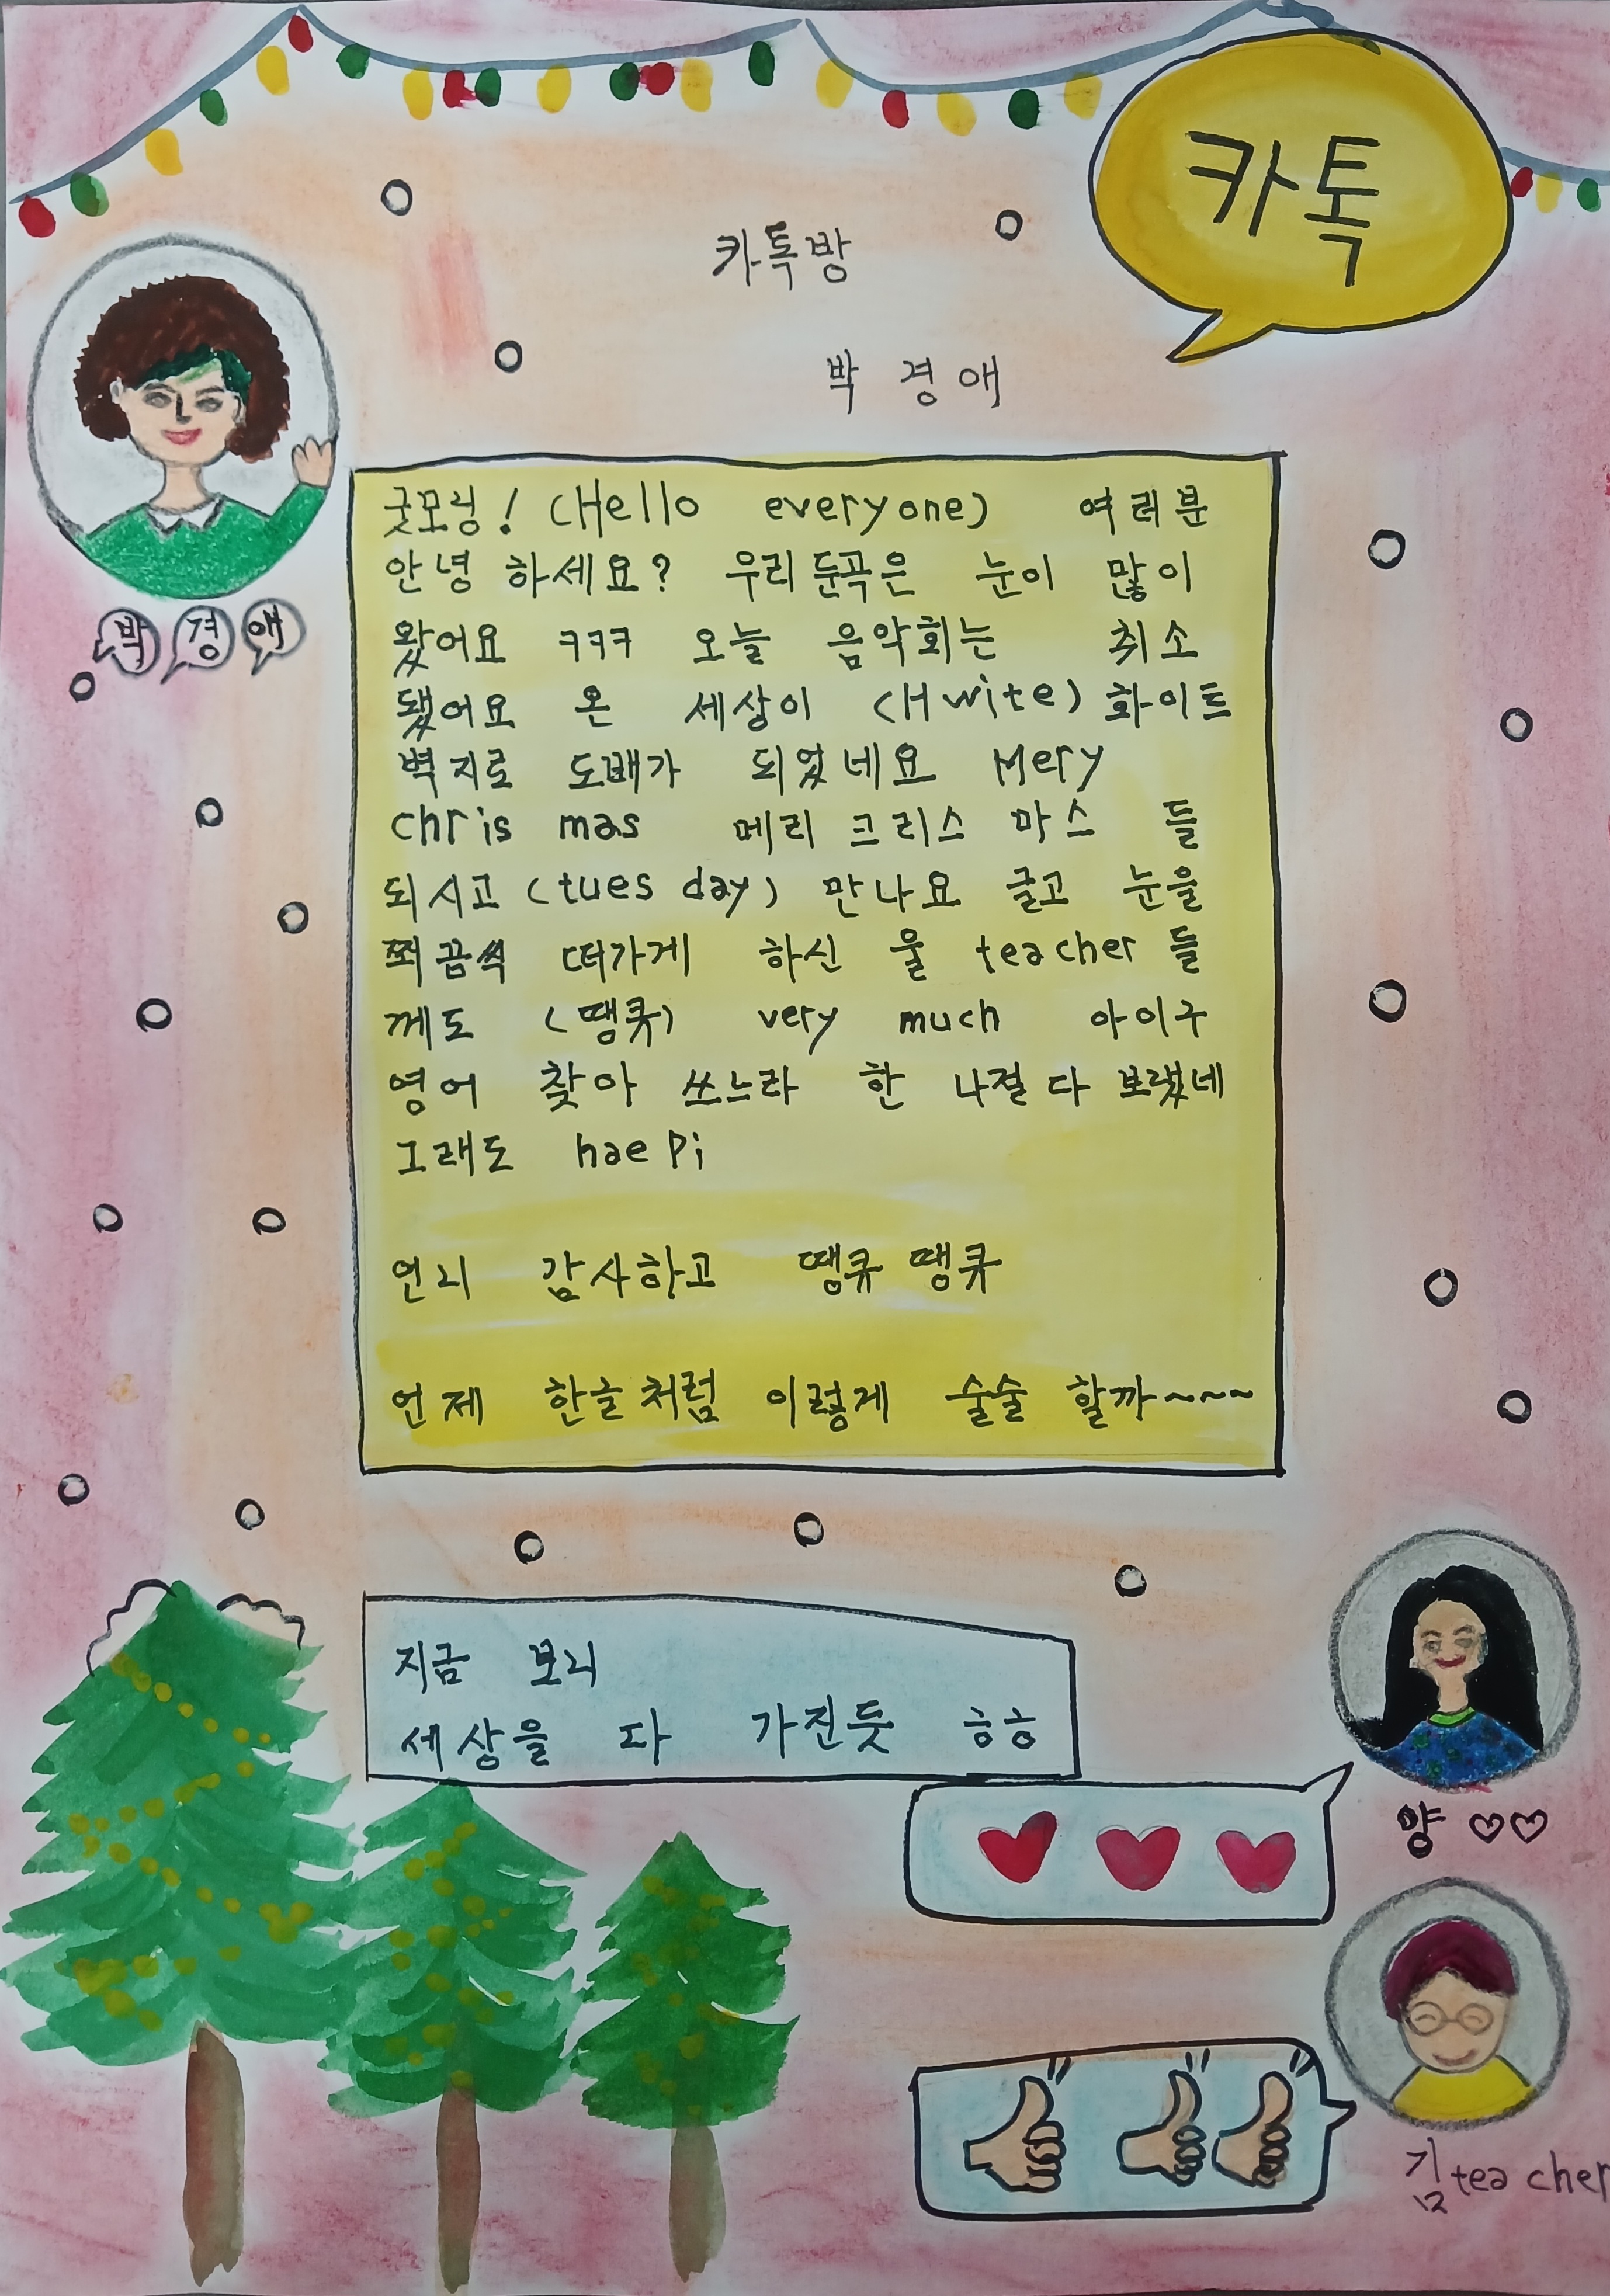 카톡
카톡방
박 경 애
박 경 애
굿모닝! (Hello everyone) 여러분
안녕 하세요? 우리 둔곡은 눈이 많이
왔어요 ㅋㅋㅋ 오늘 음악회는 취소
됐어요 온 세상이 (Hwite) 화이트
벽지로 도배가 되었네요 Mery
chris mas 메리 크리스 마스 들
되시고 (tues day) 만나요 글고 눈을
쬐끔씩 떠가게 하신 울 teacher 들
께도 (땡큐) very much 아이구
영어 찾아 쓰느라 한 나절 다 보냈네
그래도 hae Pi
언니 감사하고 땡큐 땡큐
언제 한글처럼 이렇게 술술 할까~~~
지금 보니
세상을 다 가진듯 ㅎㅎ
양 ♡♡
김 tea cher